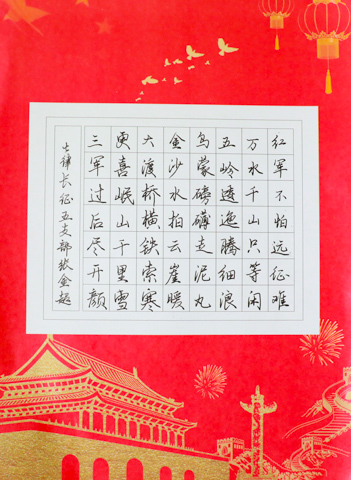 红军不怕远征难
万水千山只等闲
五岭逶迤腾细浪
乌蒙磅礴走泥丸
金沙水拍云崖暖
大渡桥横铁索寒
更喜岷山千里雪
三军过后尽开颜
七律长征五支部张金超